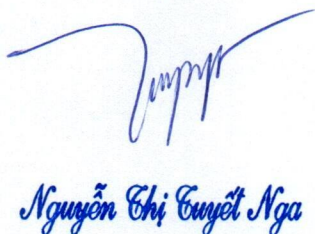 Nguyễn Thị Tuyết Nga